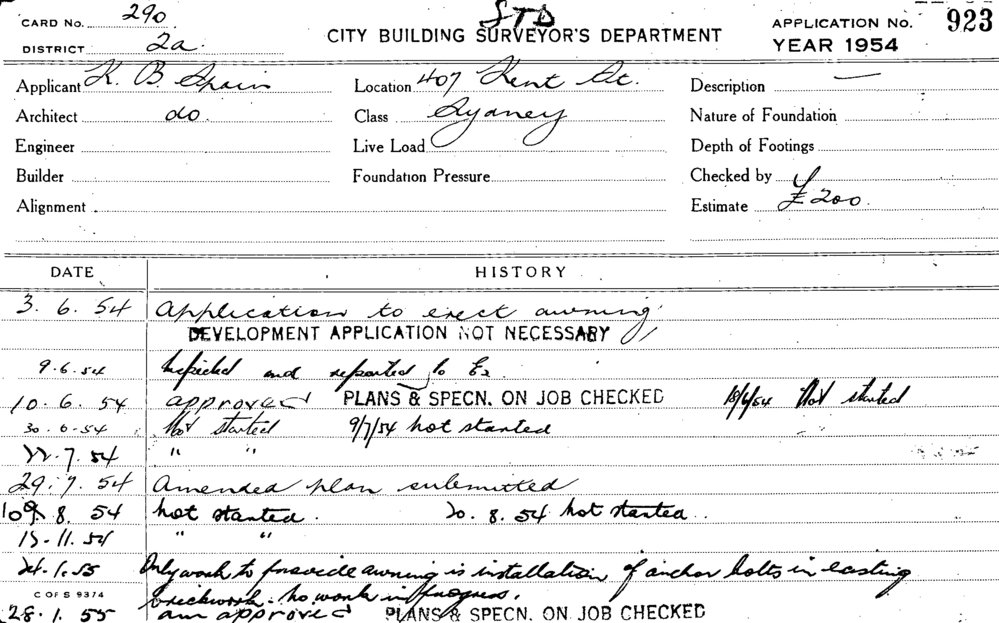 CARD No. 290 STD APPLICATION No. 923
DISTRICT 2a. CITY BUILDING SURVEYOR'S DEPARTMENT YEAR 1954
Applicant K. B. Spain Location 407 Kent St. Description —
Architect do. Class Sydney Nature of Foundation
Engineer Live Load Depth of Footings
Builder Foundation Pressure Checked by
Alignment Estimate £200.
DATE HISTORY
3. 6. 54 Application to erect awning
DEVELOPMENT APPLICATION NOT NECESSARY
9.6.54 Inspected and reported to Ex.
10. 6. 54 approved PLANS & SPECN. ON JOB CHECKED 18/6/54 Not started
30.6.54 Not started 9/7/54 not started
22.7.54 " "
29. 7. 54 Amended plan submitted
8. 54 not started. 20. 8. 54 not started.
11. 54 " "
24.1.55 Only work to provide awning is installation of anchor bolts in existing
C OF S 9374 brickwork. No work in progress.
28. 1. 55 am approved PLANS & SPECN. ON JOB CHECKED